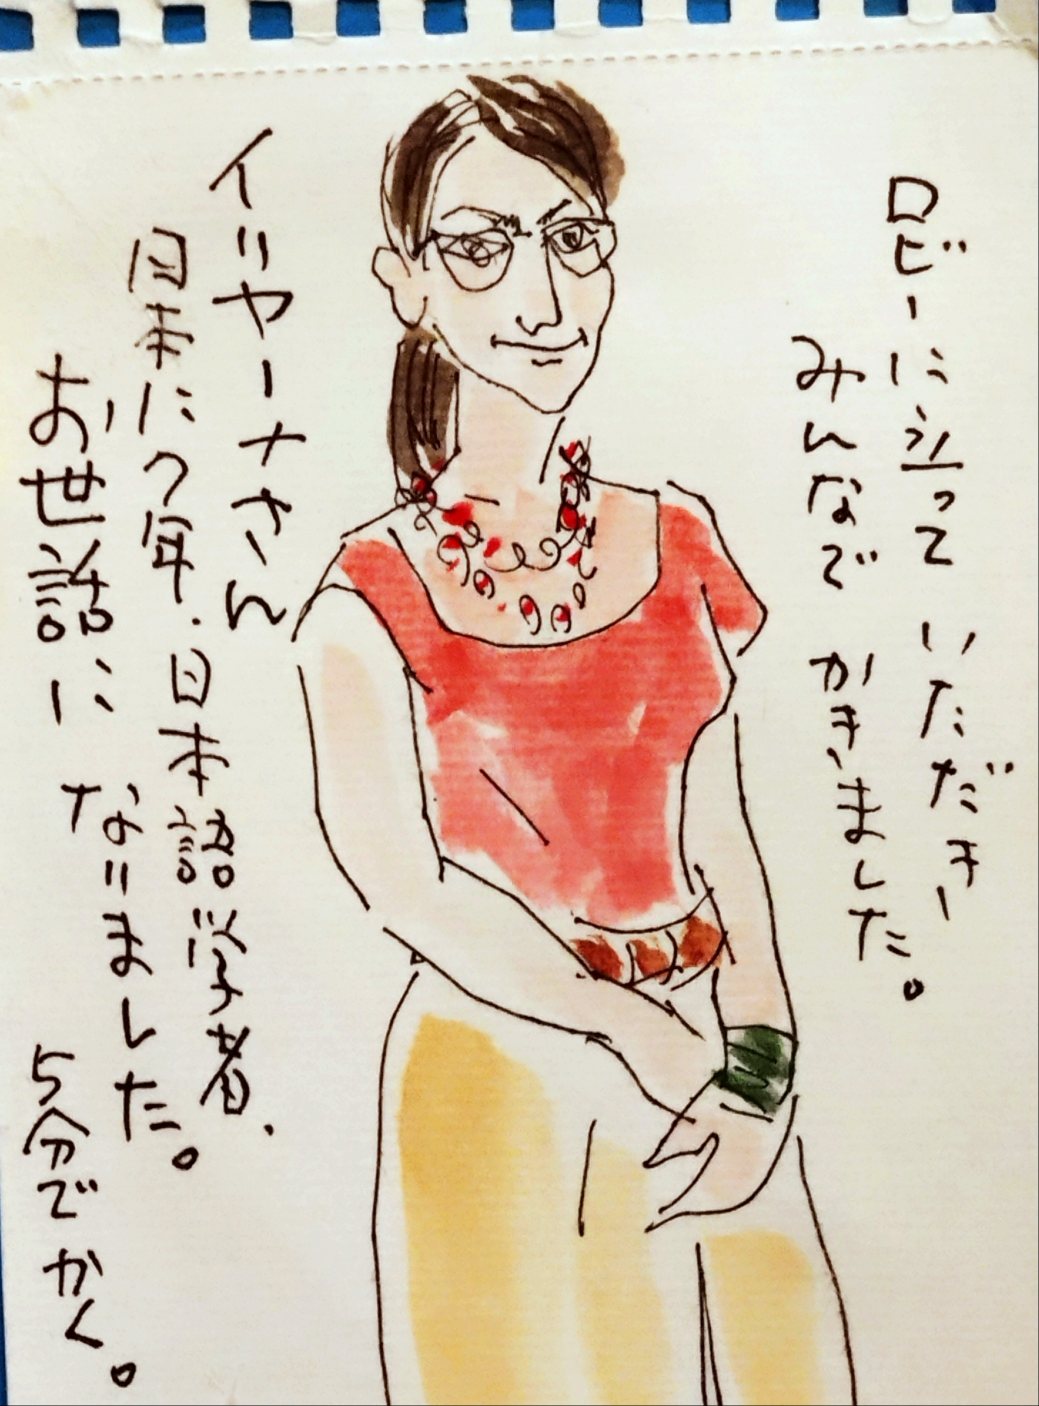 ロビーに立って いただき
みんなで かきました。
イリヤーナさん
日本に7年.日本語学者.
お世話に なりました。
5分でかく。